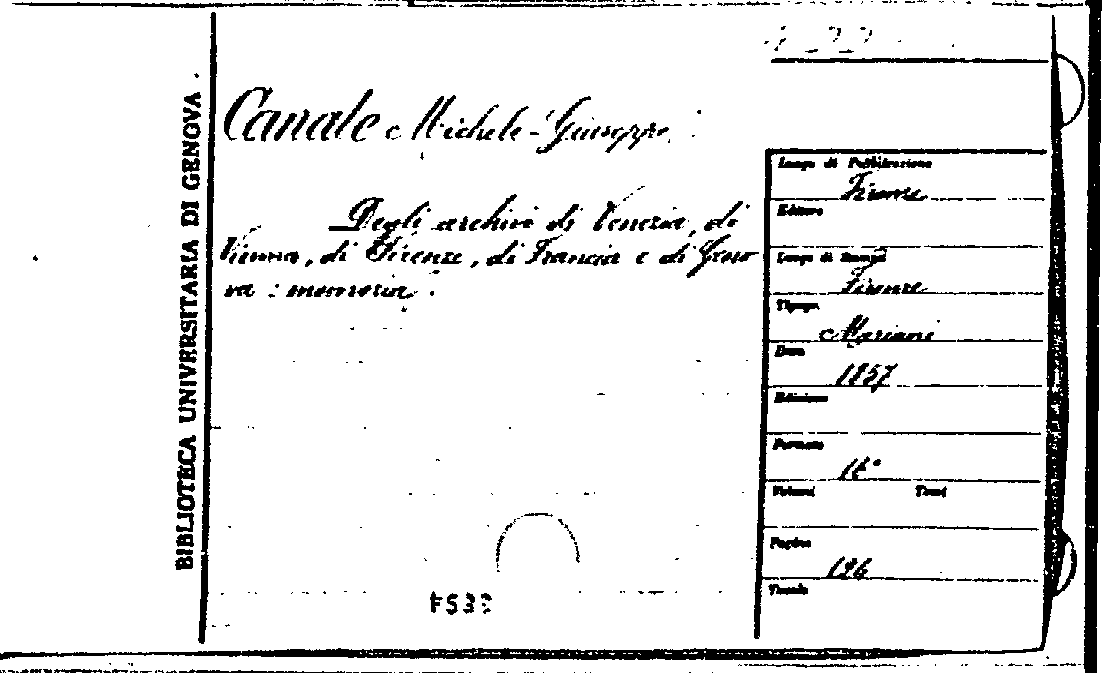 BIBLIOTECA UNIVERSITARIA DI GENOVA.
Canale Michele-Giuseppe.
Degli archivi di Venezia, di
Vienna, di Firenze, di Francia e di Geno
va : memoria.
Luogo di Pubblicazione
Firenze
Editore
Luogo di Stampa
Firenze
Tipogr.
Mariani
Data
1857
Edizione
Formato
16°
Volumi Tomi
Pagine
196
Tavole